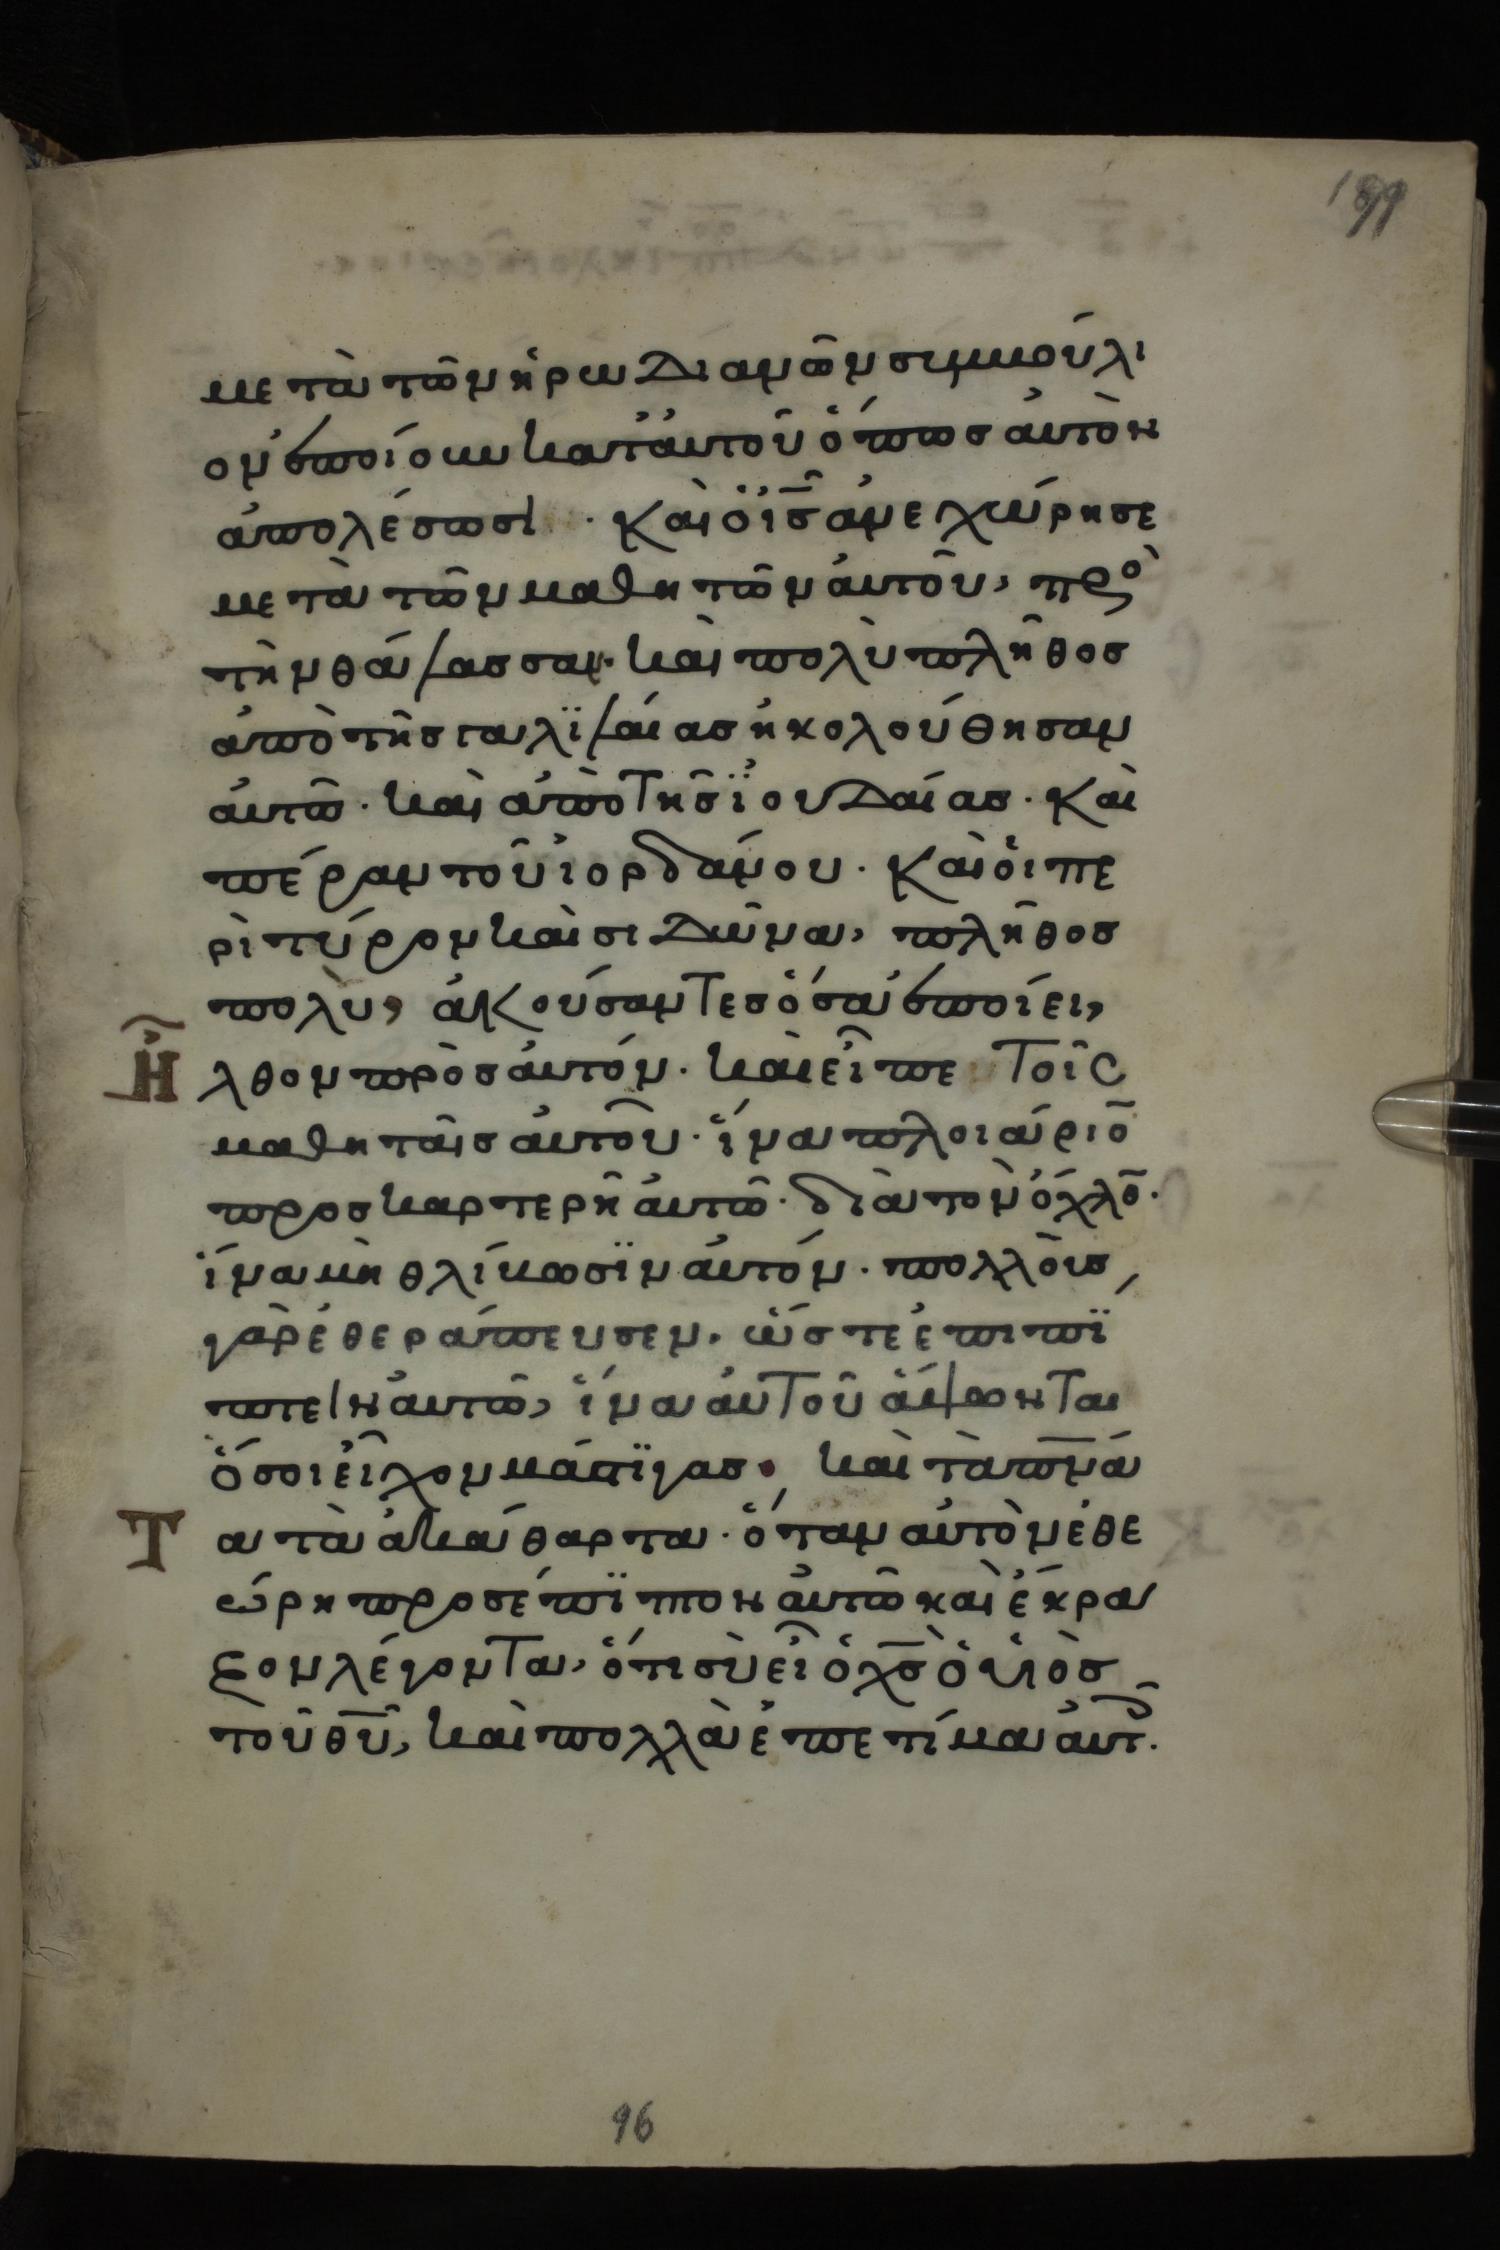 189
μετὰ τῶν ἡρωδιανῶν συμβούλι
ον ἐποίουν κατ' ἀυτοῦ ὅπως ἀυτὸν
ἀπολέσωσι · Καὶ ὁ ϊς̅ ἀνεχώρησε
μετὰ τῶν μαθητῶν ἀυτοῦ, πρὸ
τὴν θάλασσαν· καὶ πολὺ πλῆθος
ἀπὸ τῆς γαλϊλάιας ἠκολούθησαν
ἀυτῶ · καὶ ἀπὸ τῆς ϊουδάιας · Καὶ
πέραν τοῦ ἰορδάνου · Καὶ ὁι πε
ρὶ τύρον καὶ σιδῶνα, πλῆθος
πολὺ, ἀκούσαντες ὅσα ἐποίει,
Ἦλθον πρὸς ἀυτόν · καὶ εἶπε τοῖς
μαθηταῖς ἀυτοῦ · ἵνα πλοιάριο̅
προσκαρτερῆ ἀυτῶ · διὰ τὸν ὄχλο̅ ·
ἵνα μὴ θλίβωσϊν ἀυτόν · πολλὸυς
γὰρ ἐθεράπευσεν · ὥστε ἐπιπϊ
πτειν ἀυτῶ, ἵνα ἀυτοῦ ἅψωνται
ὅσοι εἶχον μάστϊγας · καὶ τὰ πν̅ά
Τα τὰ ἀκάθαρτα · ὅταν ἀυτὸν ἐθε
ώρη προσέπϊπτον ἀυτῶ καὶ ἔκρα
ζον λέγοντα, ὅτι σὺ εἶ ὁ χς̅ ὁ ὑιὸς
τοῦ θυ̅, καὶ πολλὰ ἐπετίμα ἀυτ ·
96